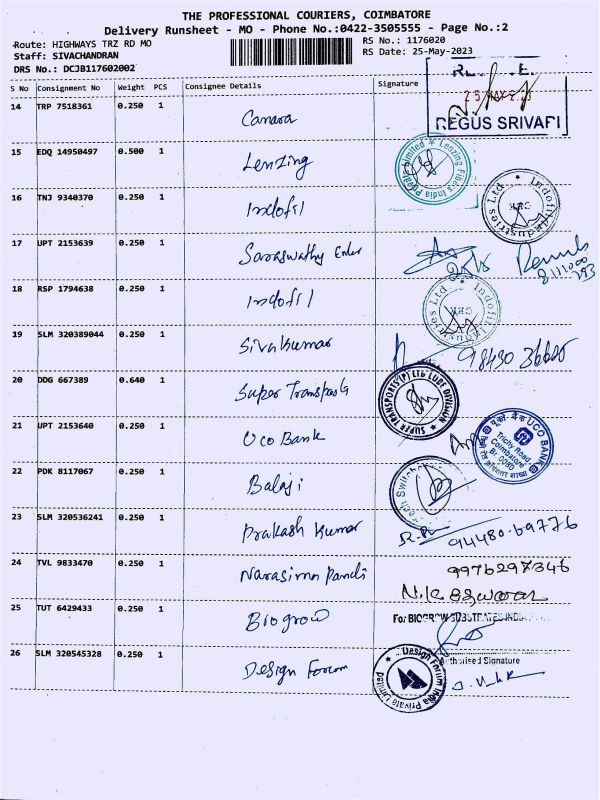 THE PROFESSIONAL COURIERS, COIMBATORE
Delivery Runsheet - MO - Phone No.:0422-3505555 - Page No.:2
Route: HIGHWAYS TRZ RD MO
RS No.: 1176020
Staff: SIVACHANDRAN
RS Date: 25-May-2023
DRS No.: DCJB117602002
S No Consignment No Weight PCS Consignee Details Signature
REGUS SRIVARI
14 TRP 7518361 0.250 1 Canara
15 EDQ 14950497 0.500 1 Lenzing
Lenzing Fibers India Private Limited
16 TNJ 9340370 0.250 1 Indofil
Indofil Industries Ltd
17 UPT 2153639 0.250 1 Saraswathy Enter
18 RSP 1794638 0.250 1 Indofil
Indofil Industries Ltd
19 SLM 320389044 0.250 1 Sivakumar
20 DDG 667389 0.640 1 Super Transports
SUPER TRANSPORTS (P) LTD CUBE DIVISION
21 UPT 2153640 0.250 1 Uco Bank
यूको बैंक UCO BANK
Trichy Road
Coimbatore
Br. 0030
22 PDK 8117067 0.250 1 Balaji
23 SLM 320536241 0.250 1 Prakash Kumar
94480-69776
24 TVL 9833470 0.250 1 Narasimn Pandi
9976297346
25 TUT 6429433 0.250 1 Biogrow
For BIOGROW SUBSTRATES INDIA
Authorised Signature
26 SLM 320545328 0.250 1 Design Forum
Design Forum India Private Limited